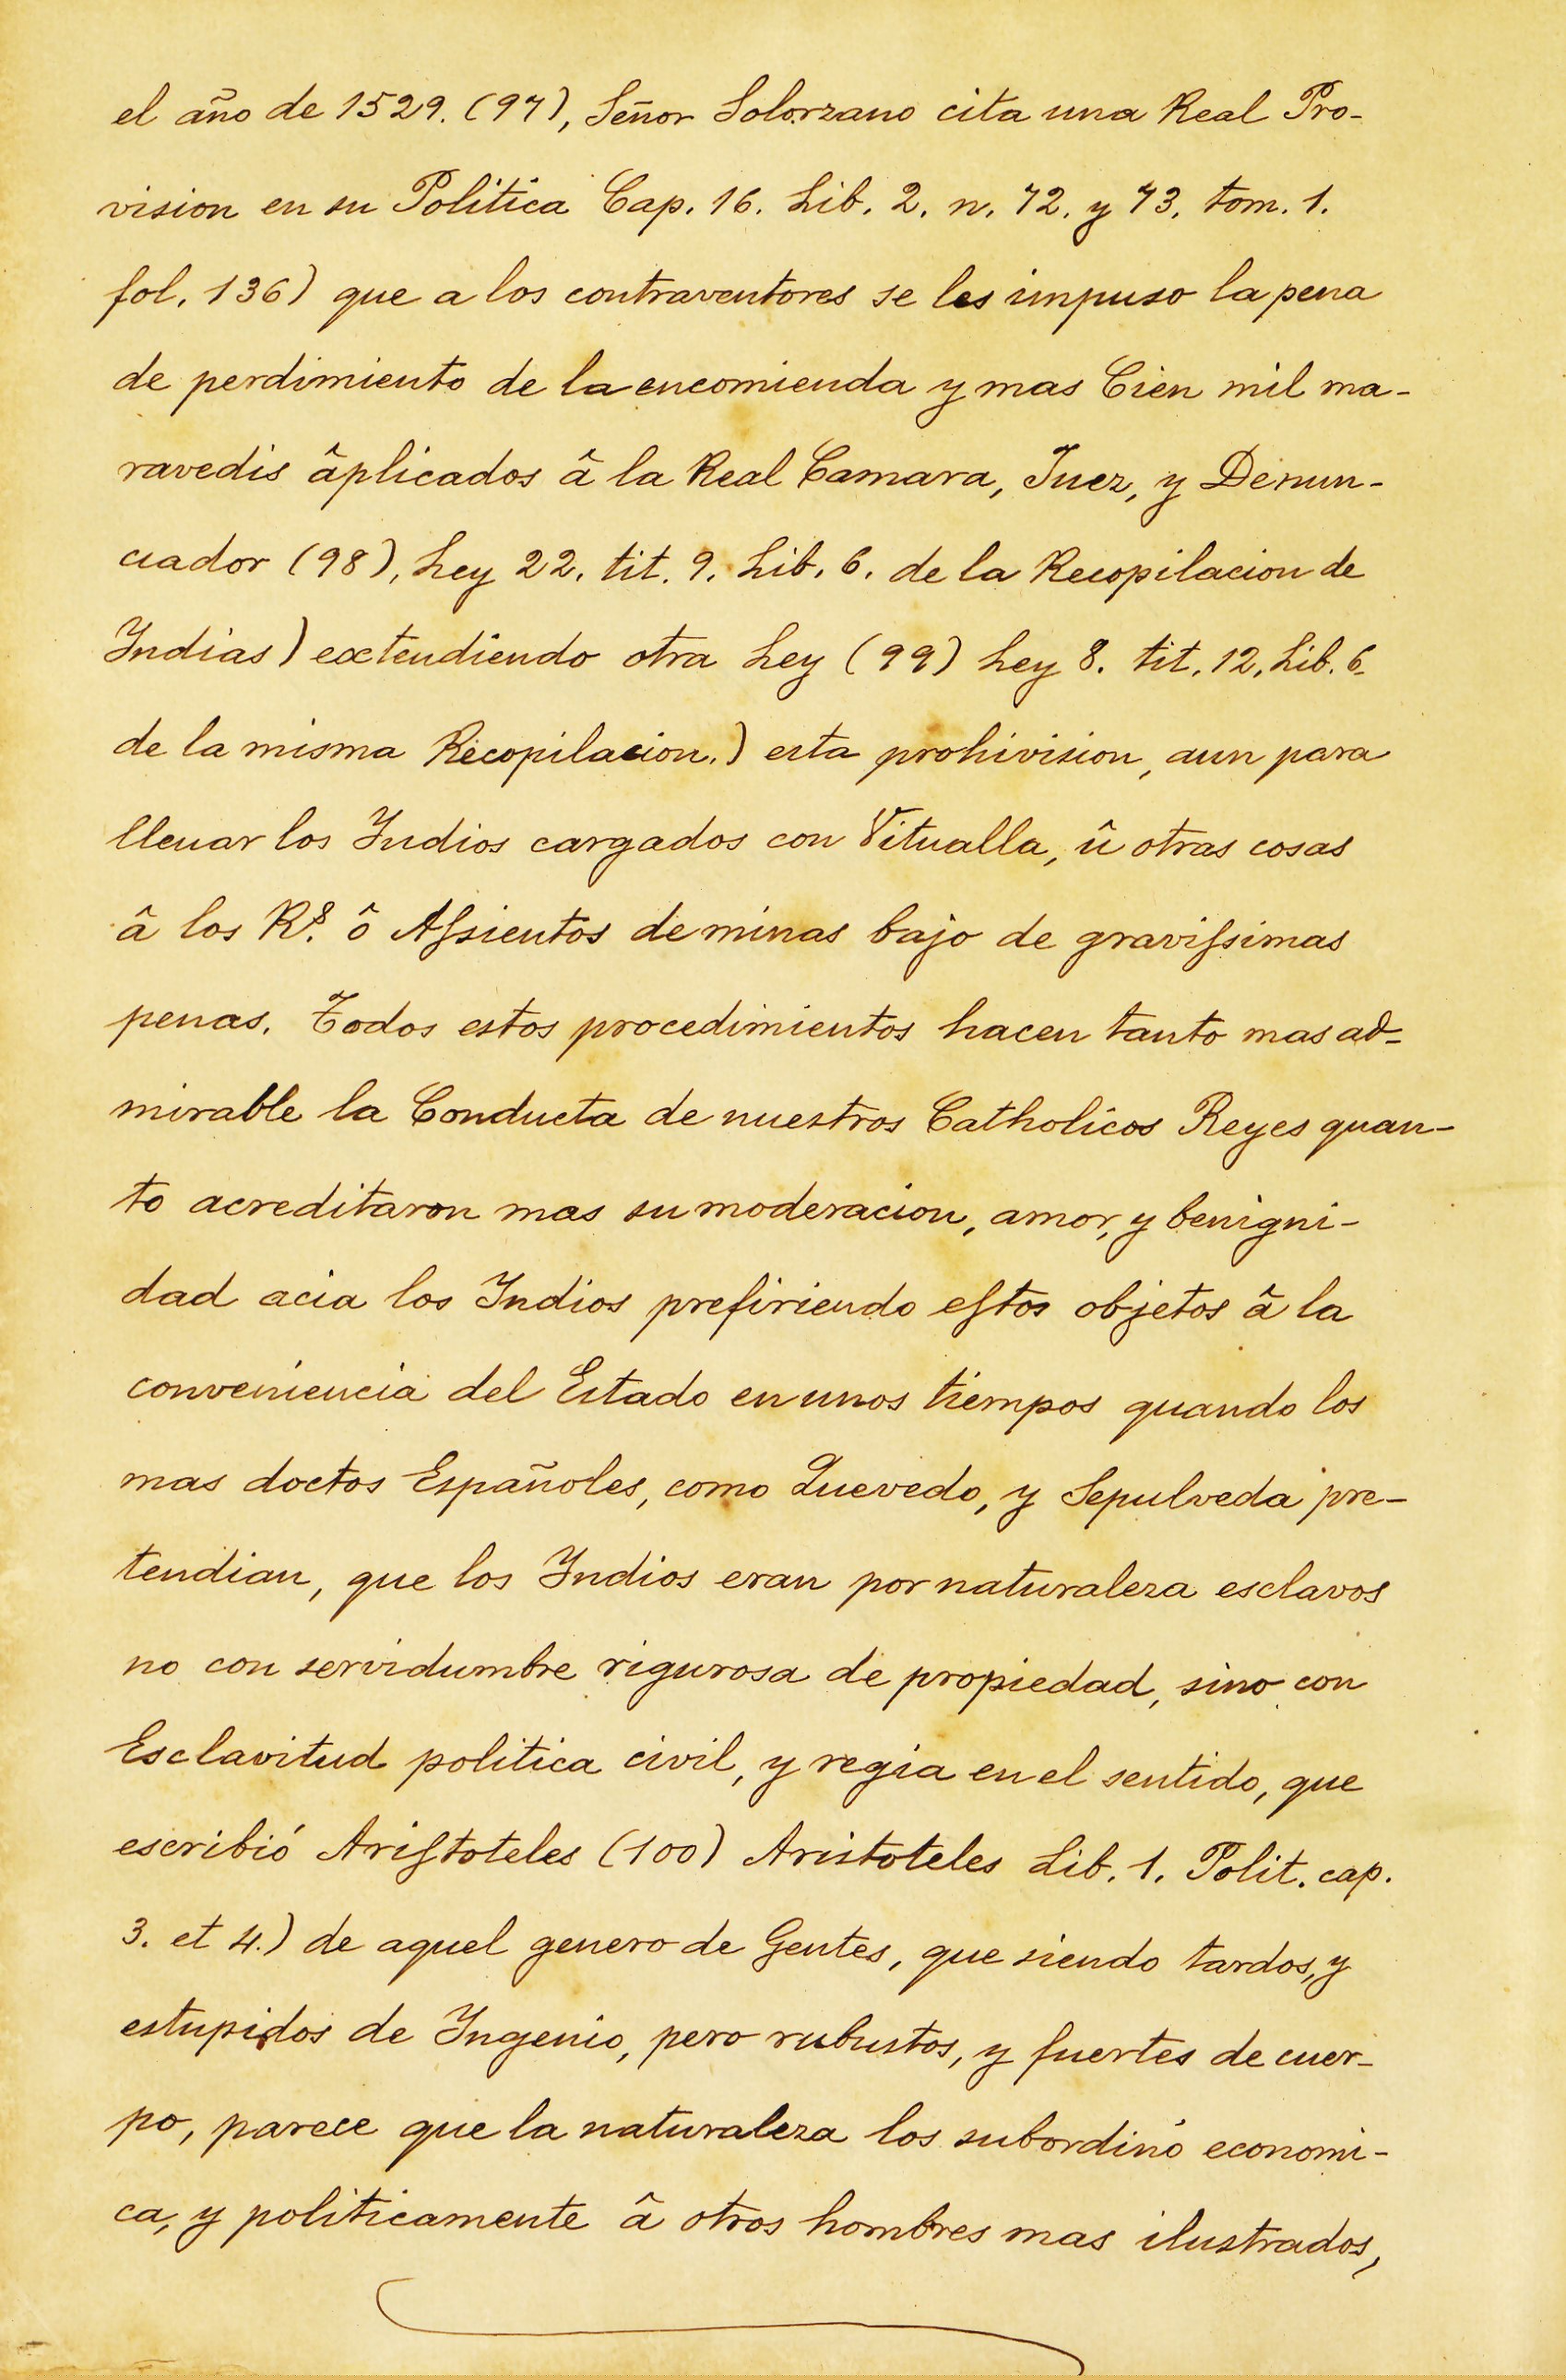 el año de 1529. (97), Señor Solorzano cita una Real Pro-
vision en su Politica Cap. 16. Lib. 2. n. 72. y 73. tom. 1.
fol. 136) que a los contraventores se les impuso la pena
de perdimiento de la encomienda y mas Cien mil ma-
ravedis âplicados â la Real Camara, Juez, y Denun-
ciador (98), Ley 22. tit. 9. Lib. 6. de la Recopilacion de
Indias) extendiendo otra Ley (99) Ley 8. tit. 12. Lib. 6.
de la misma Recopilacion.) esta prohivision, aun para
lleuar los Indios cargados con Vitualla, û otras cosas
â los R.s ô Aſsientos de minas bajo de graviſsimas
penas. Todos estos procedimientos hacen tanto mas ad-
mirable la Conducta de nuestros Catholicos Reyes quan-
to acreditaron mas su moderacion, amor, y benigni-
dad acia los Indios prefiriendo eſtos objetos â la
conveniencia del Estado en unos tiempos quando los
mas doctos Españoles, como Quevedo, y Sepulveda pre-
tendian, que los Indios eran por naturaleza esclavos
no con servidumbre rigurosa de propiedad, sino con
Esclavitud politica civil, y regia en el sentido, que
escribió Ariſtoteles (100) Aristoteles Lib. 1. Polit. cap.
3. et 4.) de aquel genero de Gentes, que siendo tardos, y
estupidos de Ingenio, pero rubustos, y fuertes de cuer-
po, parece que la naturaleza los subordinó economi-
ca, y politicamente â otros hombres mas ilustrados,